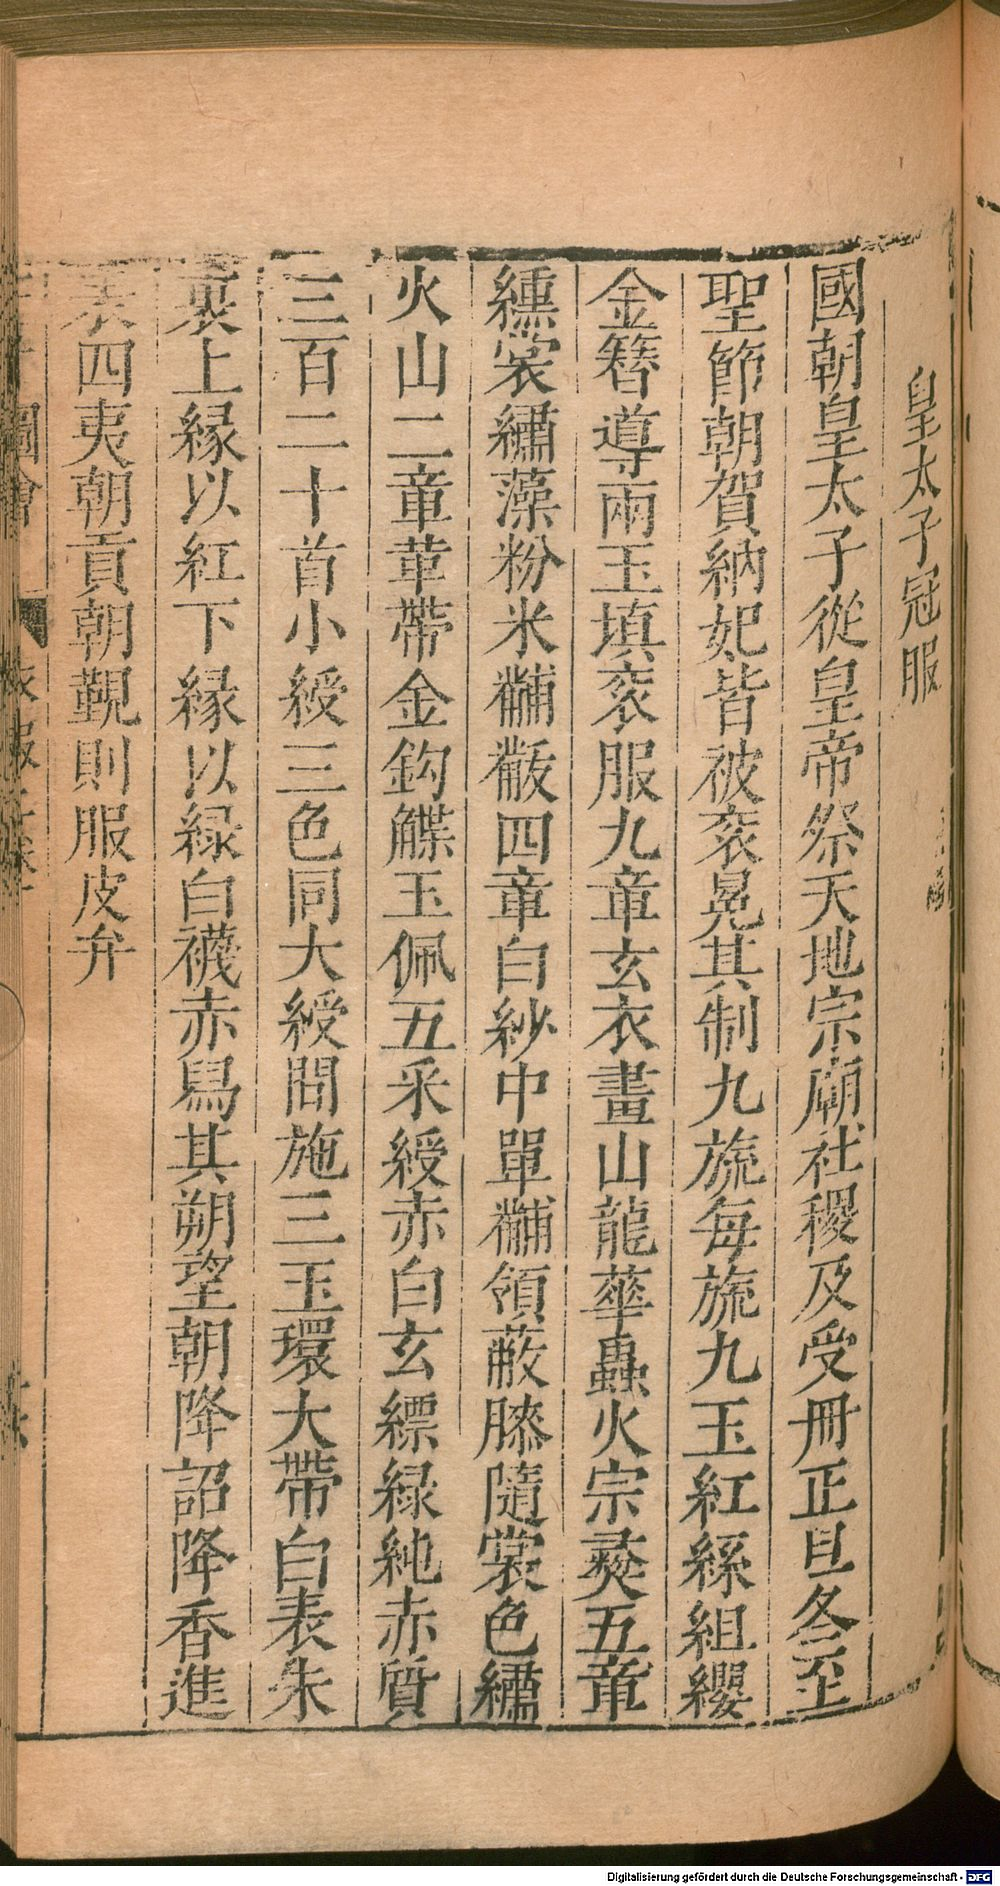 皇太子冠服
國朝皇太子從皇帝祭天地宗廟社稷及受冊正旦冬至
聖節朝賀納妃皆被衮冕其制九旒每旒九玉紅絲組纓
金簪導兩玉填衮服九章玄衣畫山龍華蟲火宗彝五章
纁裳繡藻粉米黼黻四章白紗中單黼領蔽膝隨裳色繡
火山二章革帶金鈎䚢玉佩五采綬赤白玄縹緑純赤質
三百二十首小綬三色同大綬間施三玉環大帶白表朱
裏上縁以紅下縁以緑白襪赤舄其朔望朝降詔降香進
表四夷朝貢朝覲則服皮弁
圖會
Digitalisierung gefördert durch die Deutsche Forschungsgemeinschaft - DFG